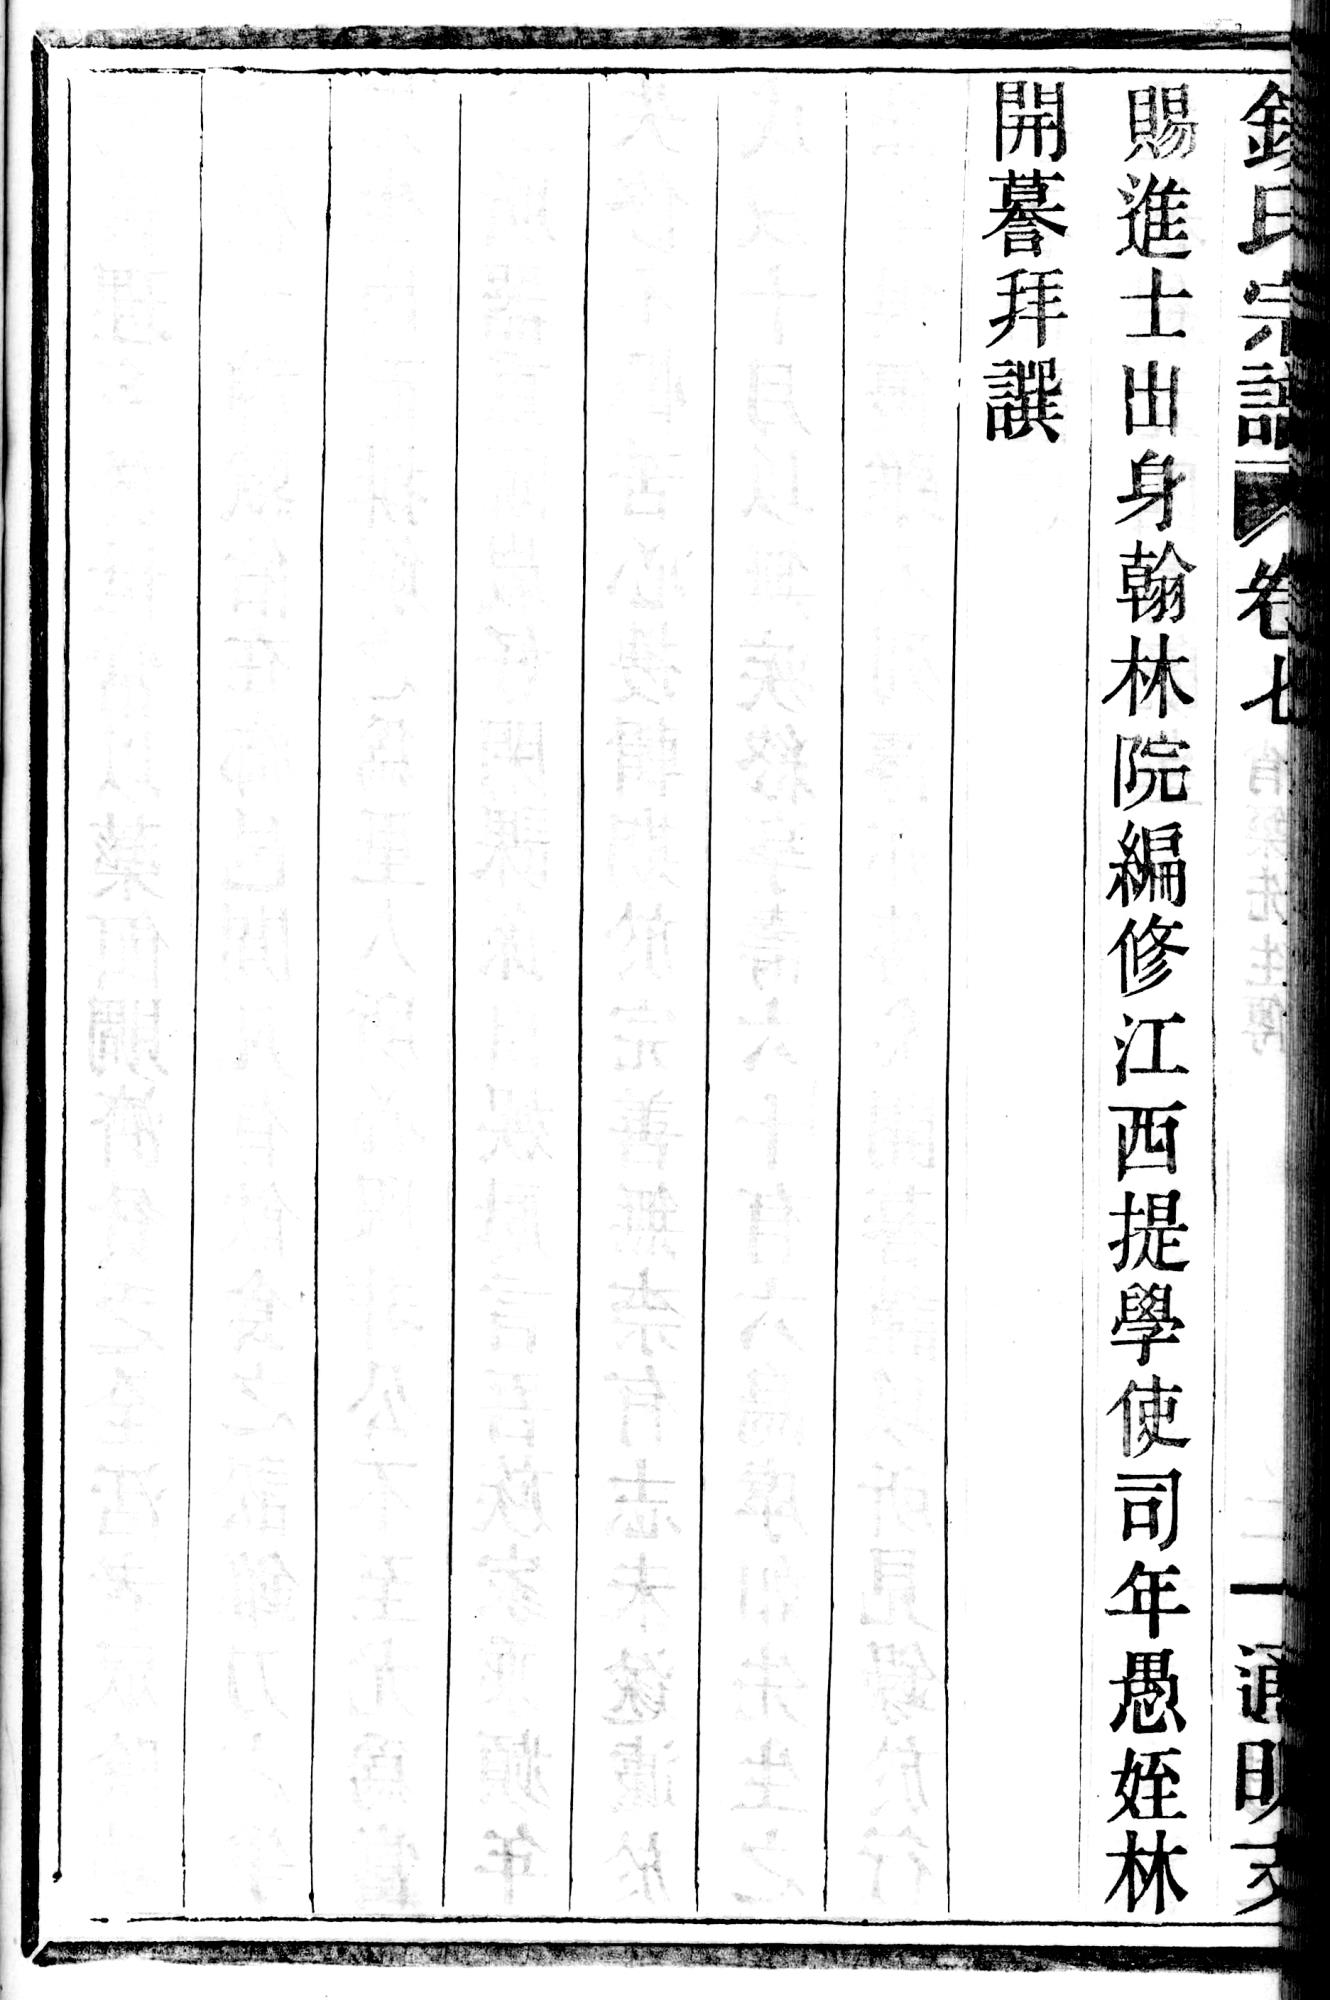 氏宗譜 卷七 一 通明支
賜進士出身翰林院編修江西提學使司年愚姪林
開謩拜譔